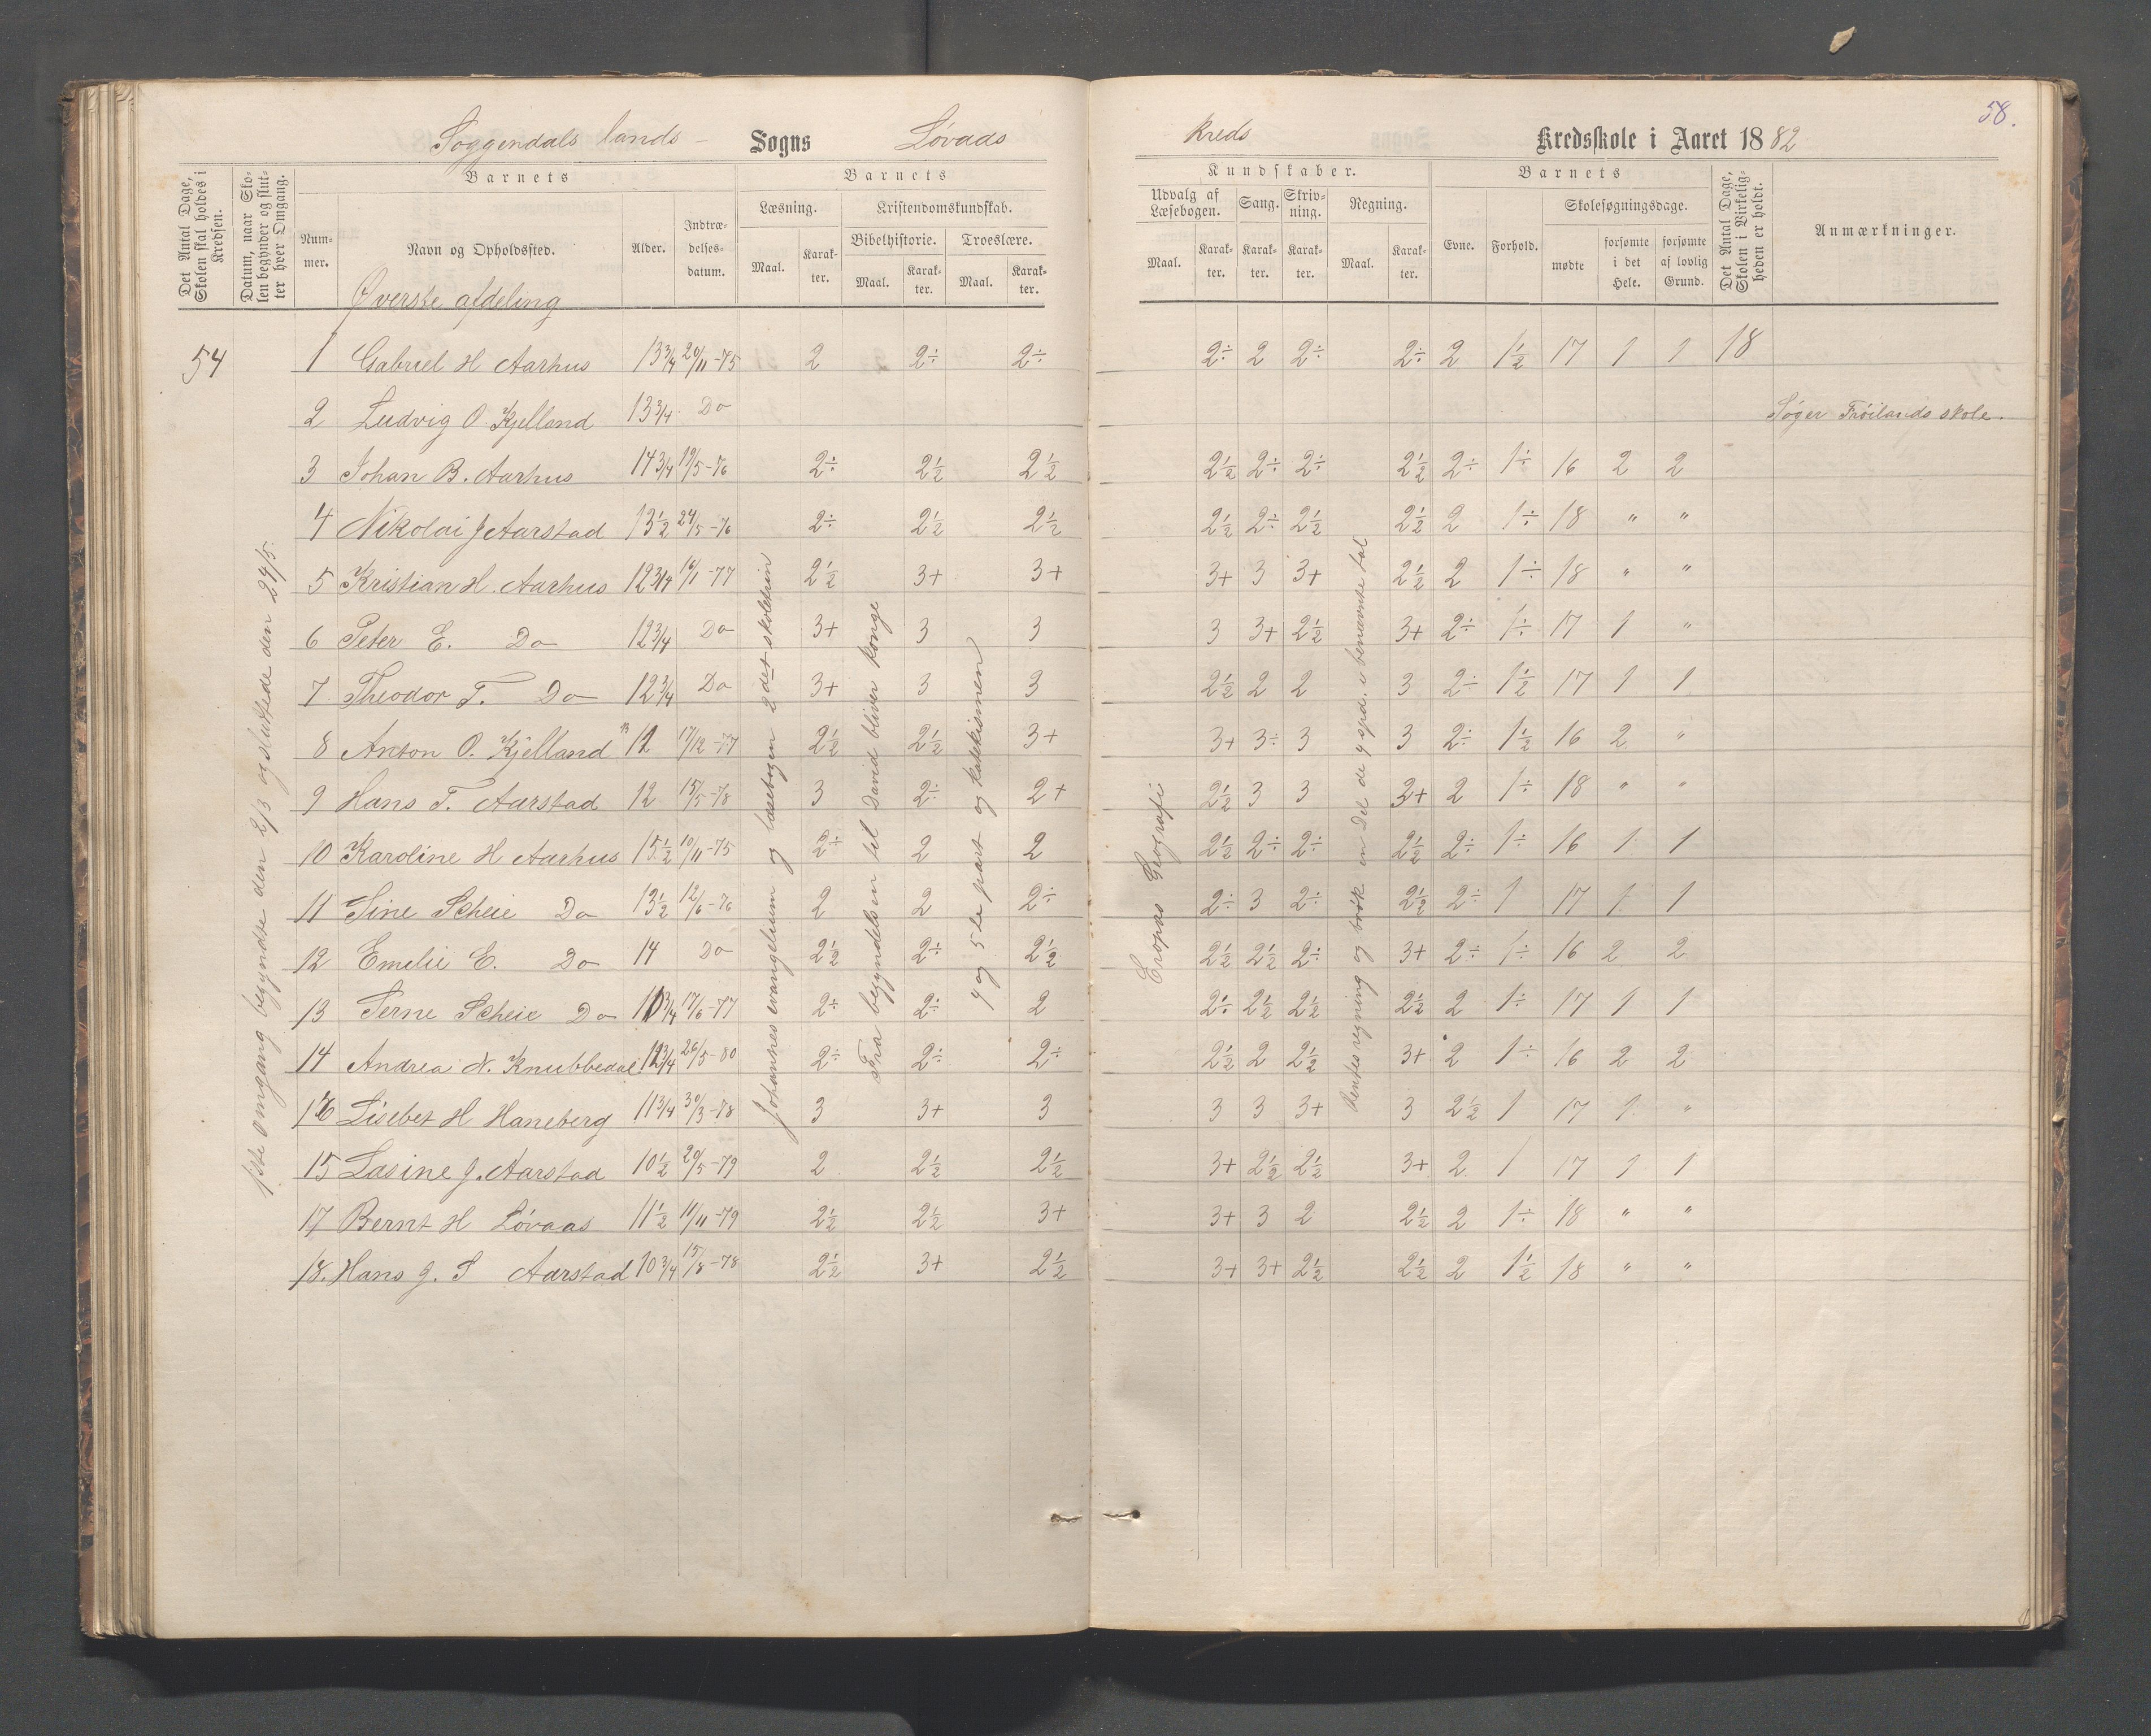 58.
Soggendals lands - Sogns Løvaas Kreds Kredsskole i Aaret 1882
Det Antal Dage, Skolen skal holdes i Kredsen.
Datum, naar Skolen begynder og slutter hver Omgang.
Barnets
Nummer.
Navn og Opholdssted.
Alder.
Indtrædelsesdatum.
Barnets
Læsning.
Maal.
Karakter.
Kristendomskundskab.
Bibelhistorie.
Maal.
Karakter.
Troeslære.
Maal.
Karakter.
Kundskaber.
Udvalg af Læsebogen.
Maal.
Karakter.
Sang.
Karakter.
Skrivning.
Karakter.
Regning.
Maal.
Karakter.
Barnets
Evne.
Forhold.
Skolesøgningsdage.
mødte
forsømte i det Hele.
forsømte af lovlig Grund.
Det Antal Dage, Skolen i Virkeligheden er holdt.
Anmærkninger.
Øverste afdeling
54 1 Gabriel H Aarhus 13 3/4 20/11-75 2 2÷ 2÷ 2÷ 2 2÷ 2÷ 2 1½ 17 1 1 18
2 Ludvig O. Kjelland 13 3/4 Do Søger Frøilands skole.
3 Johan B. Aarhus 14 3/4 19/5-76 2÷ 2½ 2½ 2½ 2÷ 2÷ 2½ 2÷ 1÷ 16 2 2
4 Nikolai J Aarstad 13½ 24/5-76 2÷ 2½ 2½ 2½ 2÷ 2½ 2½ 2 1÷ 18 " "
5 Kristian H. Aarhus 12 3/4 16/1-77 2½ 3+ 3+ 3+ 3 3+ 2½ 2 1÷ 18 " "
6 Peter E. Do 12 3/4 Do 3+ 3 3 3 3+ 2½ 3+ 2÷ 1÷ 17 1 "
7 Theodor T. Do 12 3/4 Do 3+ 3 3 2½ 2 2 3 2÷ 1½ 17 1 1
8 Anton O. Kjelland 12 17/12-77 2½ 2½ 3+ 3+ 3÷ 3 3 2÷ 1½ 16 2 "
9 Hans T. Aarstad 12 15/5-78 3 2÷ 2+ 2½ 3 3 3+ 2 1÷ 18 " "
10 Karoline H Aarhus 15½ 10/11-75 2÷ 2 2 2½ 2÷ 2÷ 2½ 2÷ 1÷ 16 1 1
11 Sine Scheie Do 13½ 12/6-76 2 2 2÷ 2÷ 3 2÷ 2½ 2÷ 1 17 1 1
12 Emelie E. Do 14 Do 2½ 2÷ 2½ 2½ 2½ 2÷ 3+ 2÷ 1÷ 16 2 2
13 Serne Scheie Do 11 3/4 17/6-77 2÷ 2÷ 2 2÷ 2½ 2½ 2½ 2 1÷ 17 1 1
14 Andrea N. Knubbedal 12 3/4 26/5-80 2÷ 2÷ 2÷ 2½ 2 2½ 3+ 2 1÷ 16 2 2
16 Lisebet H Haneberg 11 3/4 30/3-78 3 3+ 3 3 3 3+ 3 2½ 1 17 1 "
15 Lasine J. Aarstad 10½ 20/5-79 2 2½ 2½ 3+ 2½ 2½ 3+ 2 1 17 1 1
17 Bernt H Løvaas 11½ 11/11-79 2½ 2½ 3+ 3+ 3 2 2½ 2 1÷ 18 " "
18. Hans J. S Aarstad 10 3/4 15/8-78 2½ 3+ 2½ 3+ 3+ 2½ 2½ 2 1½ 18 " "
1ste omgang begyndte den 2/3 og sluttede den 24/5.
Johannes evangelium og læsebogen 2det skoletrin
Fra begyndelsen til David bliver konge
4 og 5te part og katekismen
Eropas Geografi
Rentesregning og brøk en Del de 4 spd. i benævnte tal